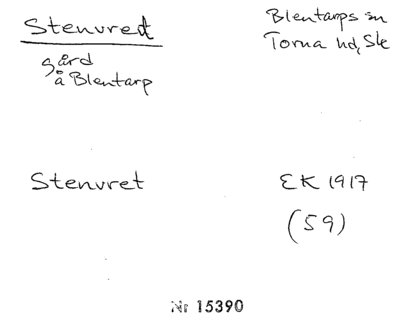 Stenvred
Blentarps sn
Torna hd, Ske
gård
å Blentarp
Stenvret
EK 1917
(59)
Nr 15390